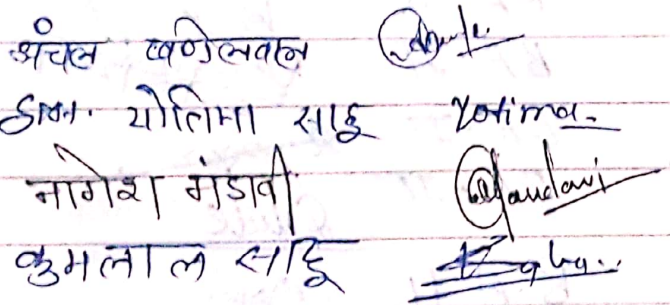 अंचल खण्डेलवाल
डॉ. योतिमा साहू Yotima
नागेश मंडावी Mandavi
कुमलाल साहू